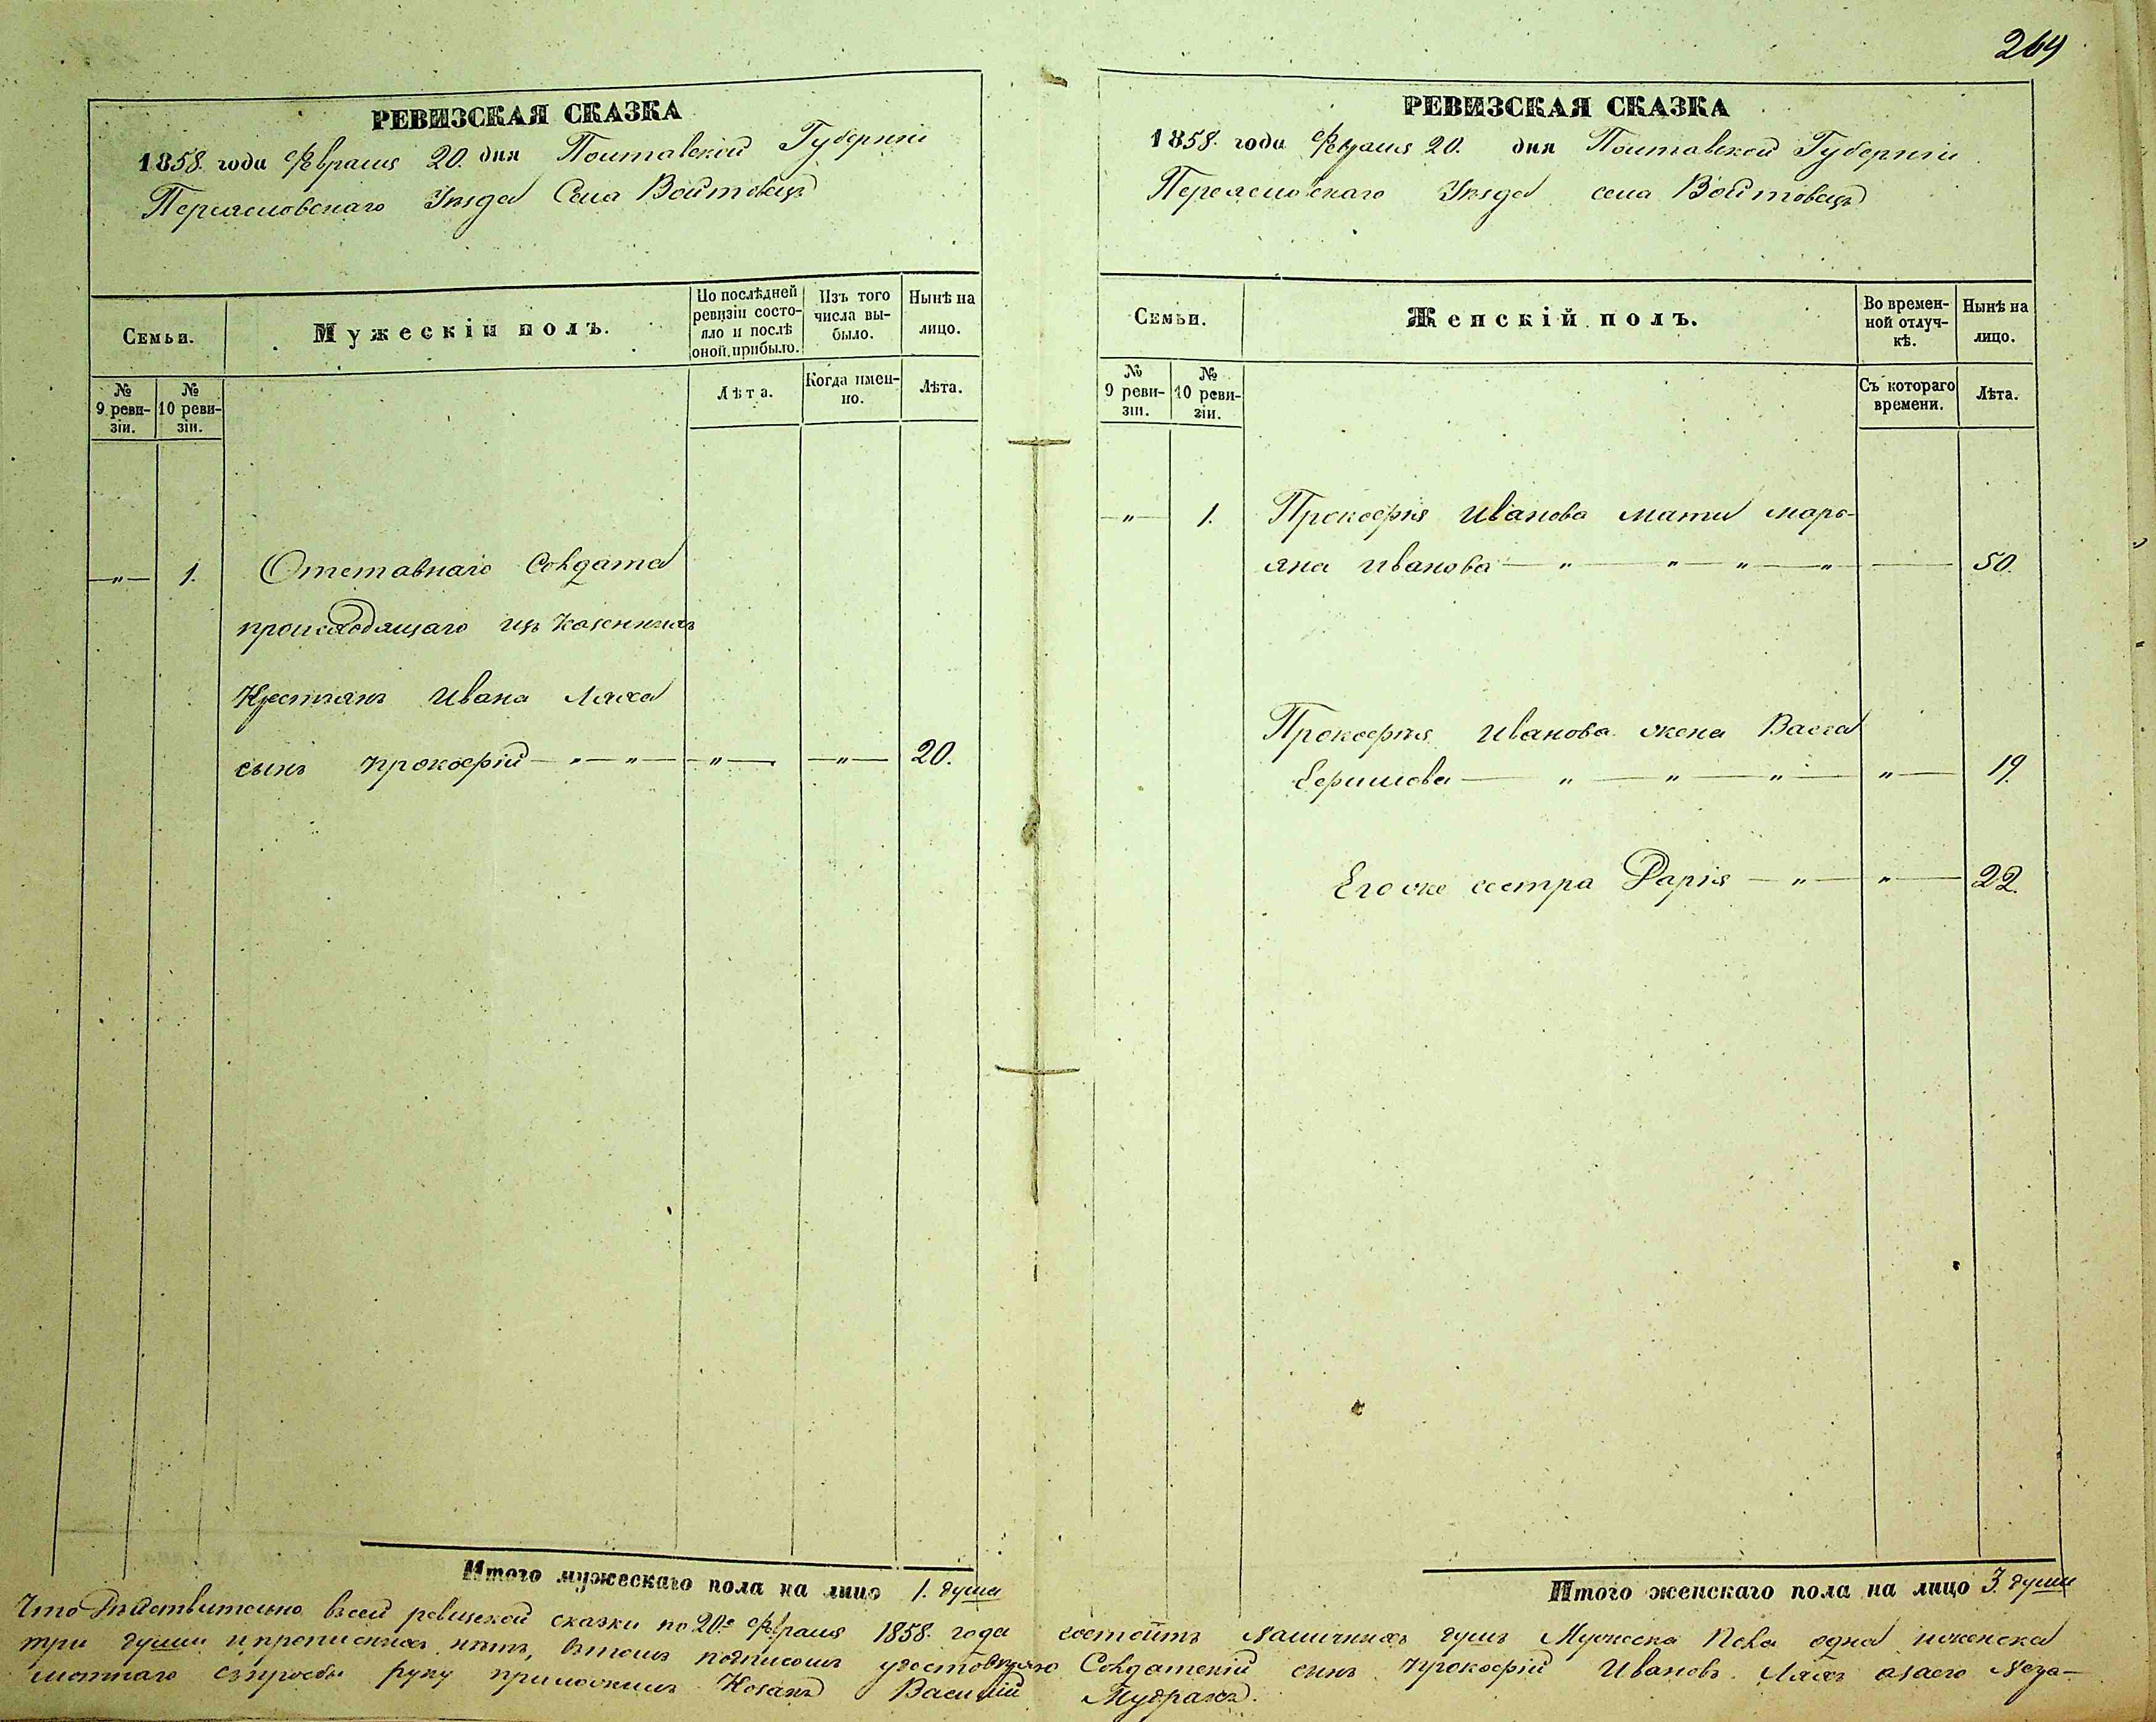 269
РЕВИЗСКАЯ СКАЗКА
1858. года Февраля 20. дня Полтавской Губерніи
Переяславскаго Уѣзда Села Войтовецъ
Семьи.
Мужескій полъ.
По послѣдней ревизіи состояло и послѣ оной прибыло.
Изъ того числа выбыло.
Нынѣ на лицо.
№ 9 ревизіи.
№ 10 ревизіи.
Лѣта.
Когда именно.
Лѣта.
—„— 1. Отставнаго Солдата
происходящаго изъ казенныхъ
Крестьянъ Ивана Ляха
сынъ Прокофій — „ — „ — „ — — „ — 20.
Итого мужескаго пола на лицо 1. душа
РЕВИЗСКАЯ СКАЗКА
1858. года Февраля 20. дня Полтавской Губерніи
Переяславскаго Уѣзда села Войтовецъ
Семьи.
Женскій полъ.
Во временной отлучкѣ.
Нынѣ на лицо.
№ 9 ревизіи.
№ 10 ревизіи.
Съ котораго времени.
Лѣта.
—„— 1. Прокофія Иванова мати мари-
яна Иванова — „ — „ — „ — „ — 50.
Прокофія Иванова жена Васса
Ефимова — „ — „ — „ — „ — 19.
Его же сестра Дарія — „ — „ — 22.
Итого женскаго пола на лицо 3. души
Что Дѣйствительно всей ревизской сказки по 20е Февраля 1858. года состоитъ наличныхъ душъ Мужеска Пола одна и женска
три души и прописныхъ нѣтъ, втомъ подписомъ удостовѣряю Солдатскій сынъ Прокофій Ивановъ Ляхъ азаего Негра-
мотнаго спросьбы руку приложилъ Козакъ Василій Мудракъ.